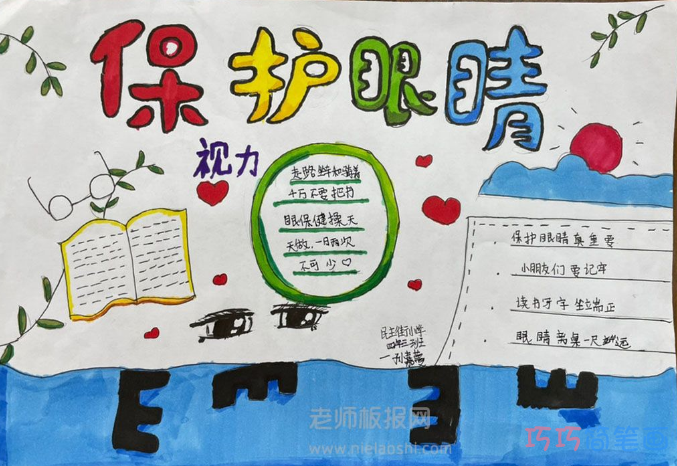 保护眼睛
视力
走路坐车和躺着
千万不要把书
眼保健操天
天做,一日两次
不可少♡
保护眼睛真重要
小朋友们要记牢
读书写字坐端正
眼睛离桌一尺远
民主街小学
四年三班
E E E E
老师板报网
www.nielaoshi.com
巧巧简笔画